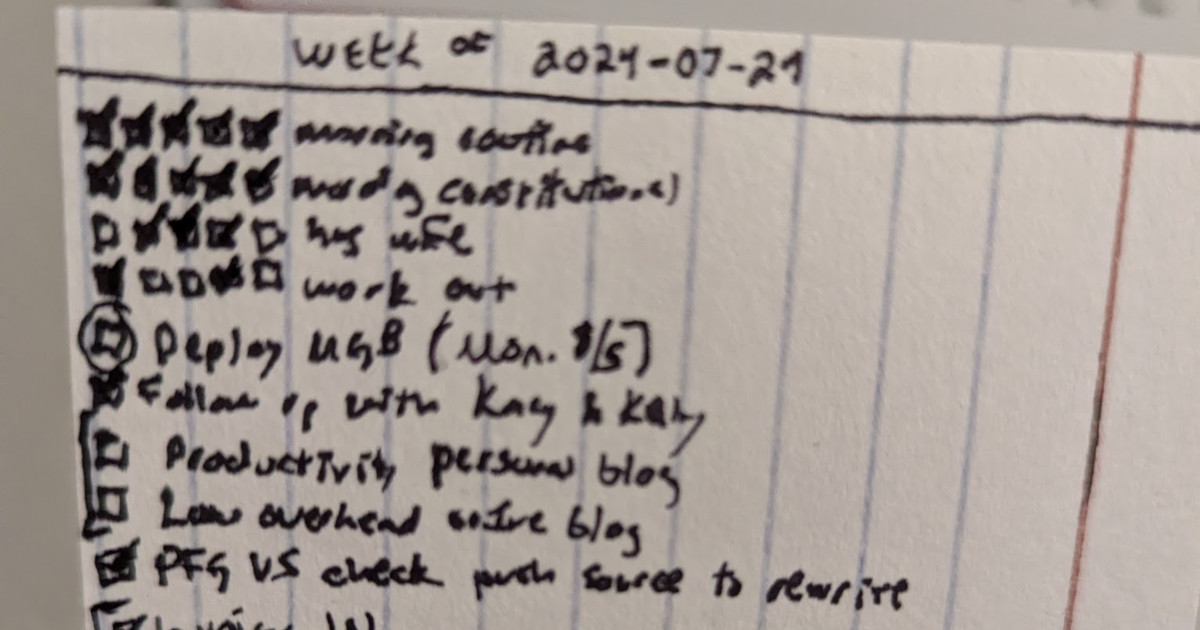 WEEK OF 2024-07-29
morning routine
morning constitutional
hug wife
work out
Deploy MGB (Mon. 8/5)
Follow up with Kay &
Productivity personal blog
Low overhead blog
PFG VS check push source to rewrite